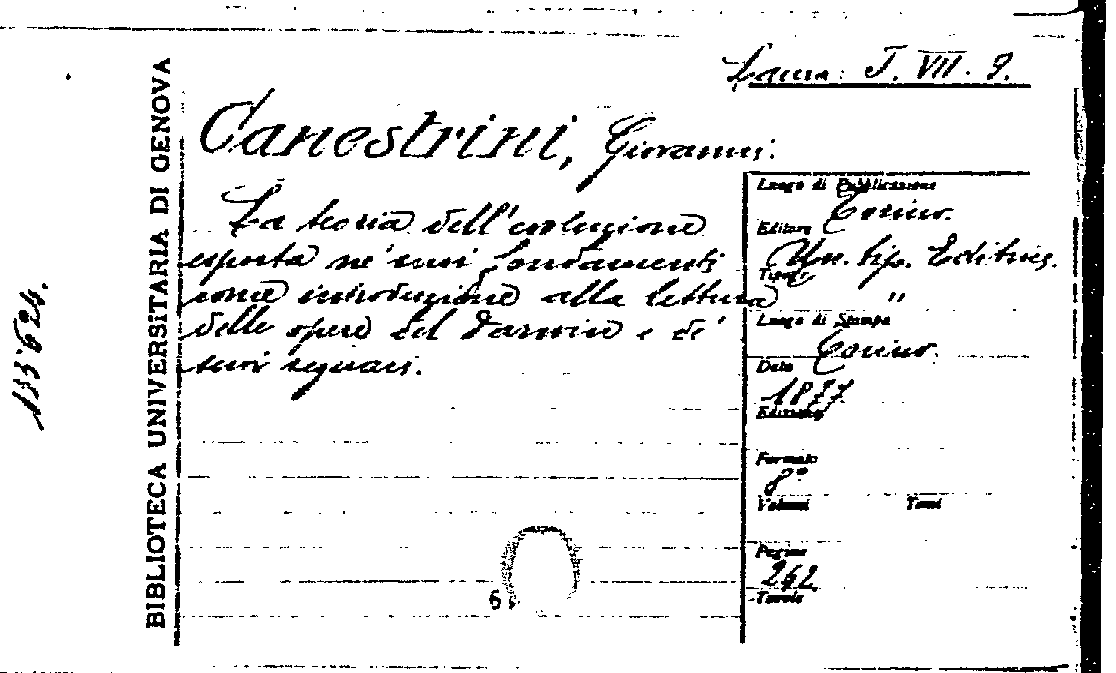 Laura: J. VII. 9.
BIBLIOTECA UNIVERSITARIA DI GENOVA
133624.
Canestrini, Giovanni.
La teoria dell'evoluzione
esposta ne' suoi fondamenti
come introduzione alla lettura
delle opere del Darwin e de'
suoi seguaci.
Luogo di Pubblicazione
Torino.
Editore
Un. tip. Editrice.
Tipogr.
"
Luogo di Stampa
Torino.
Data
1877
Edizione
Formato
8°
Volumi Tomi
Pagine
262
Tavole
6